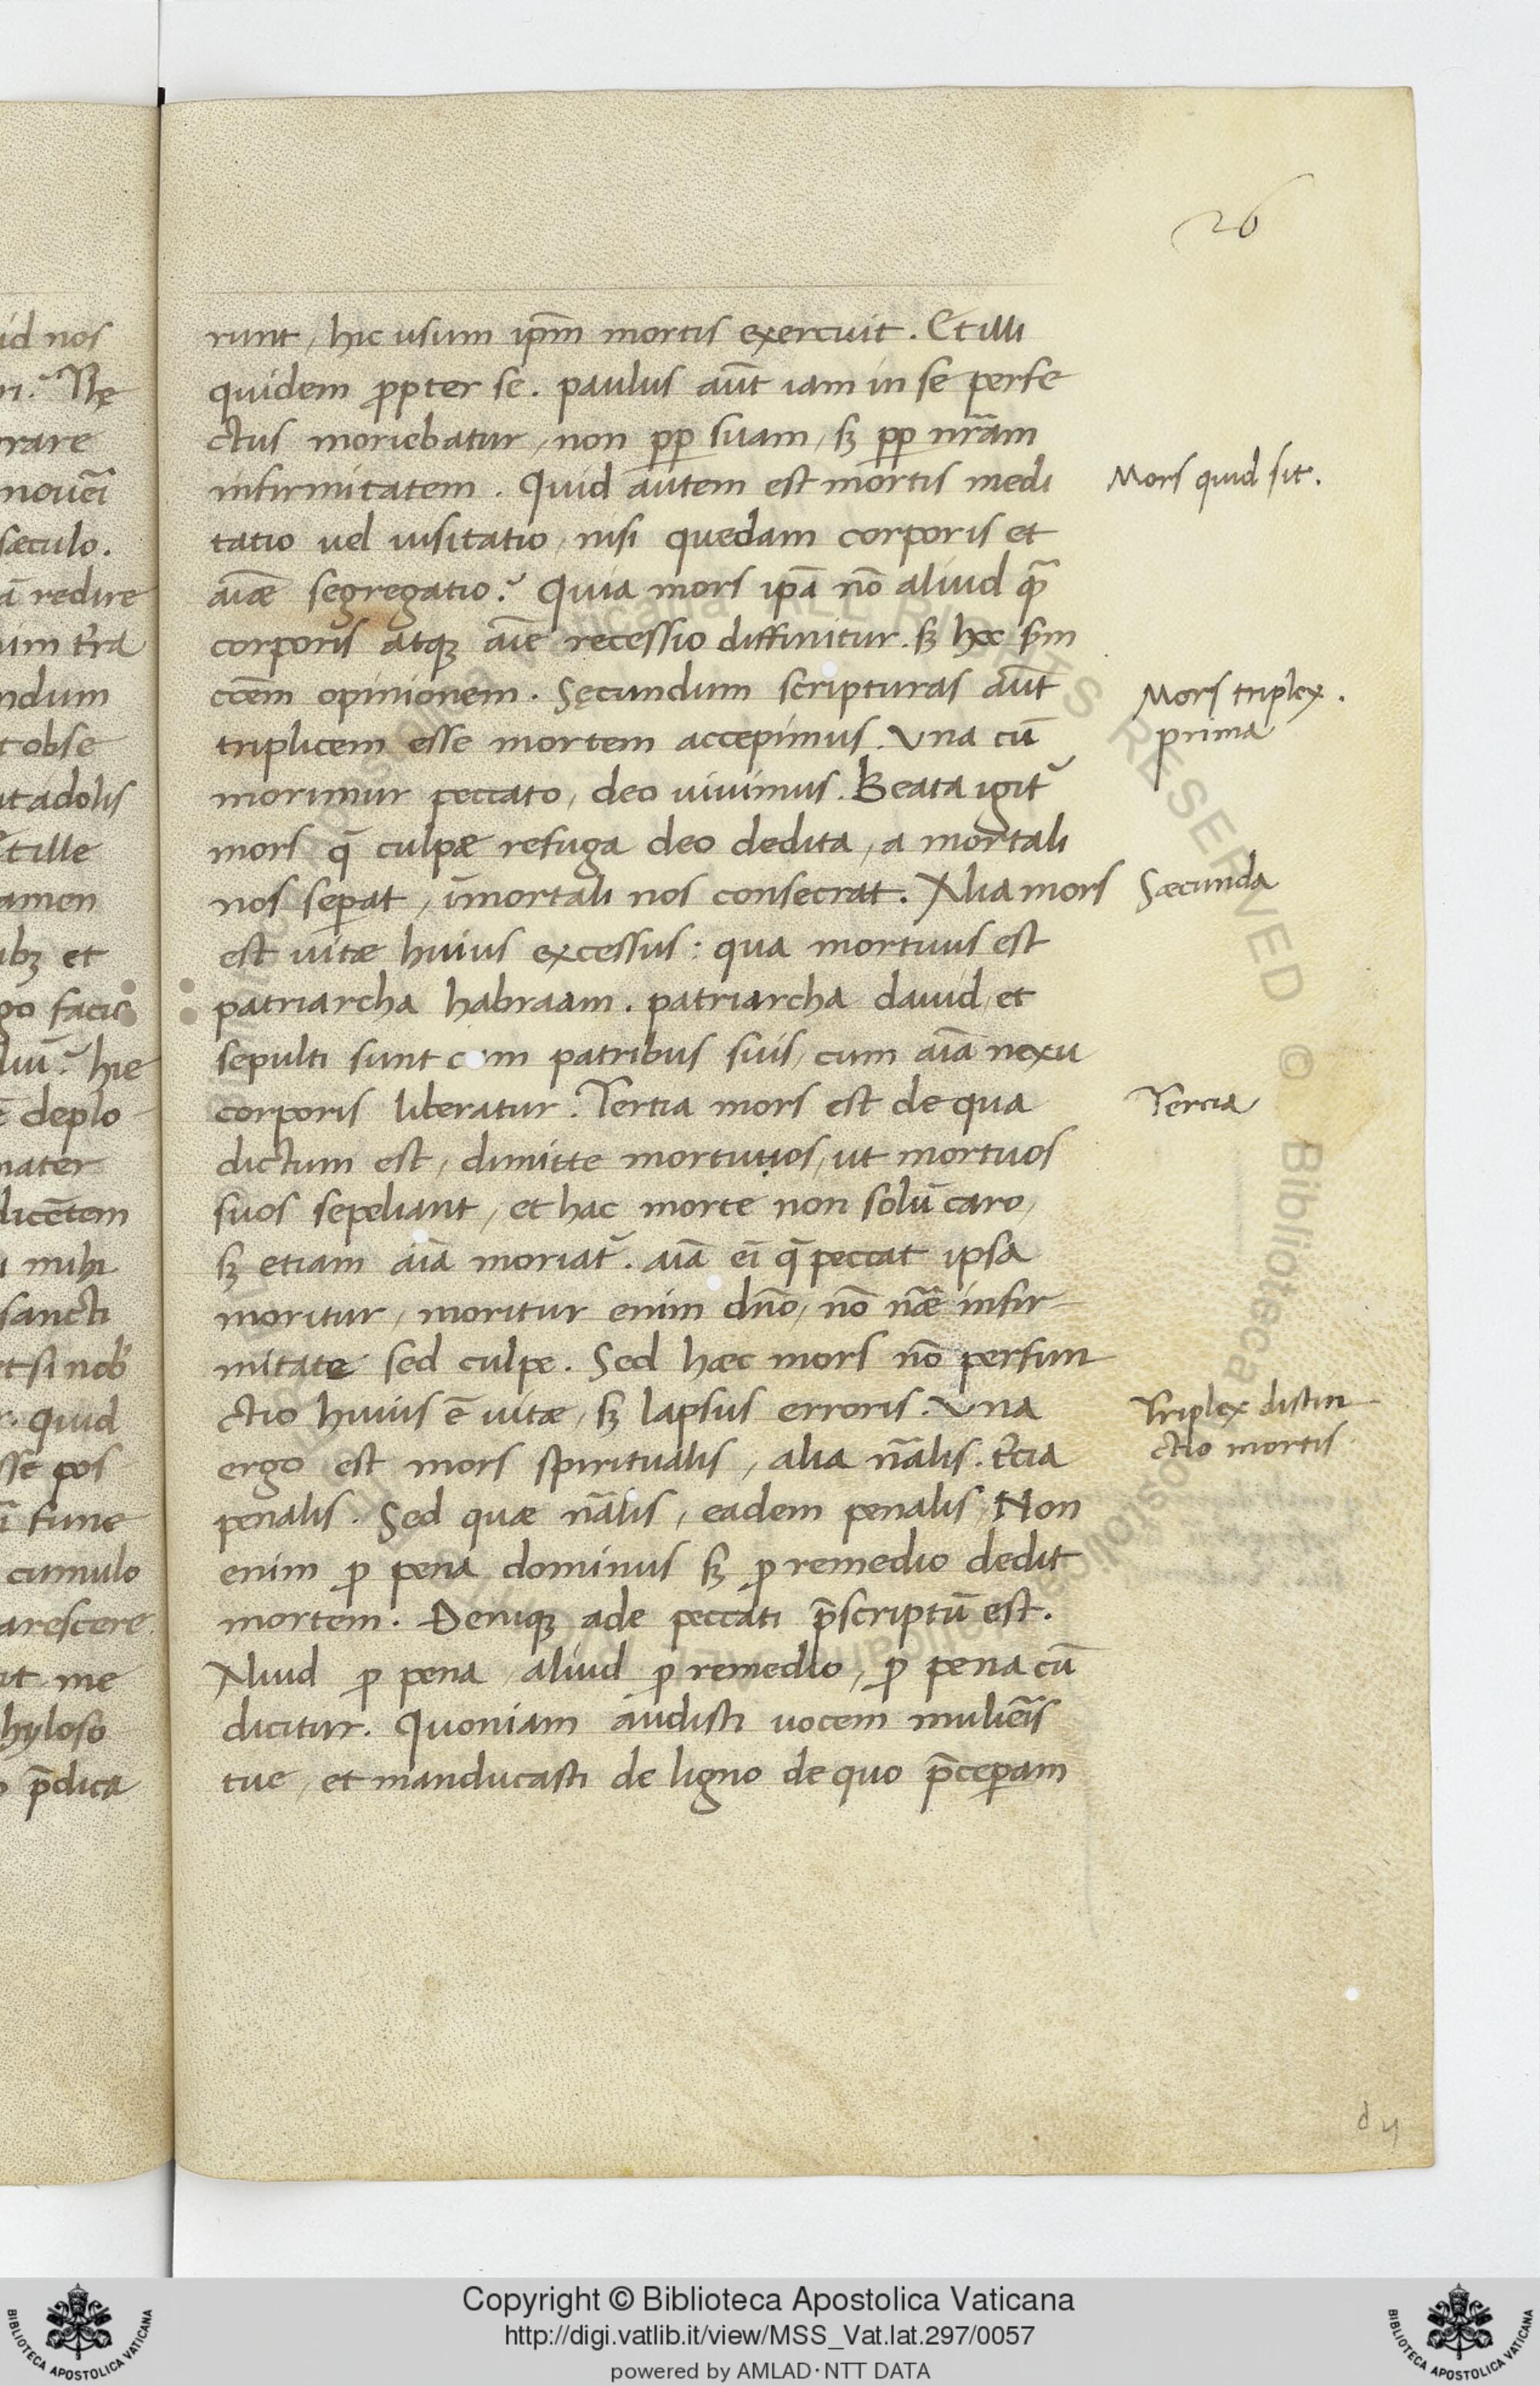 26
id nos
ri? Nę
rare
nouēi
sæculo.
ā redire
um tr̄a
ndum
t obse
ut adolis
Et ille
amen
ibꝫ et
go facis
luī? hie
ē deplo
mater
dicētem
i mihi
sancti
et si nob
r. Quid
sse pos
ī fune
cumulo
arescere
ut me
hyloso
p̄dica
runt, hic usum ip̄m mortis exercuit. Et illi
quidem ꝓpter se. paulus aūt iam in se perfe
ctus moriebatur, non ꝓp suam, sꝫ ꝓp nr̄am
infirmitatem. Quid autem est mortis medi
tatio uel uisitatio, nisi quedam corporis et
aīæ segregatio? Quia mors ip̄a nō aliud quā
corporis atqꝫ aīe recessio diffinitur. sꝫ hæc sm̄
cc̄em opinionem. Sęcundum scripturas aūt
triplicem esse mortem accepimus. Vna cū
morimur peccato, deo uiuimus. Beata igit̄
mors q̄ culpæ refuga deo dedita, a mortali
nos sep̱at, īmortali nos consecrat. Alia mors
est uitæ huius excessus: qua mortuus est
patriarcha habraam. patriarcha dauid, et
sepulti sunt cum patribus suis, cum aīa nexu
corporis liberatur. Tertia mors est de qua
dictum est, dimitte mortuuos, ut mortuos
suos sepeliant, et hac morte non solū caro,
sꝫ etiam aīa moriat̄. aīa eī q̄ peccat ipsa
moritur, moritur enim dn̄o, nō nāe infir-
mitate sed culpe. Sed hæc mors nō perfun
ctio huius ē uitæ, sꝫ lapsus erroris. Vna
ergo est mors spiritualis, alia nālis. tr̄cia
penalis. Sed quæ nālis, eadem penalis. Non
enim ꝓ pena dominus sꝫ ꝓ remedio dedit
mortem. Deniqꝫ ade peccati p̄scriptū est.
Aliud ꝓ pena, aliud ꝓ remedio, ꝓ pena cū
dicitur. Quoniam audisti uocem muliēis
tue, et manducasti de ligno de quo p̄cep̱am
Mors quid sit.
Mors triplex.
prima
Sæcunda
Tercia
Triplex distin
ctio mortis
d ij
Copyright © Biblioteca Apostolica Vaticana
http://digi.vatlib.it/view/MSS_Vat.lat.297/0057
powered by AMLAD·NTT DATA